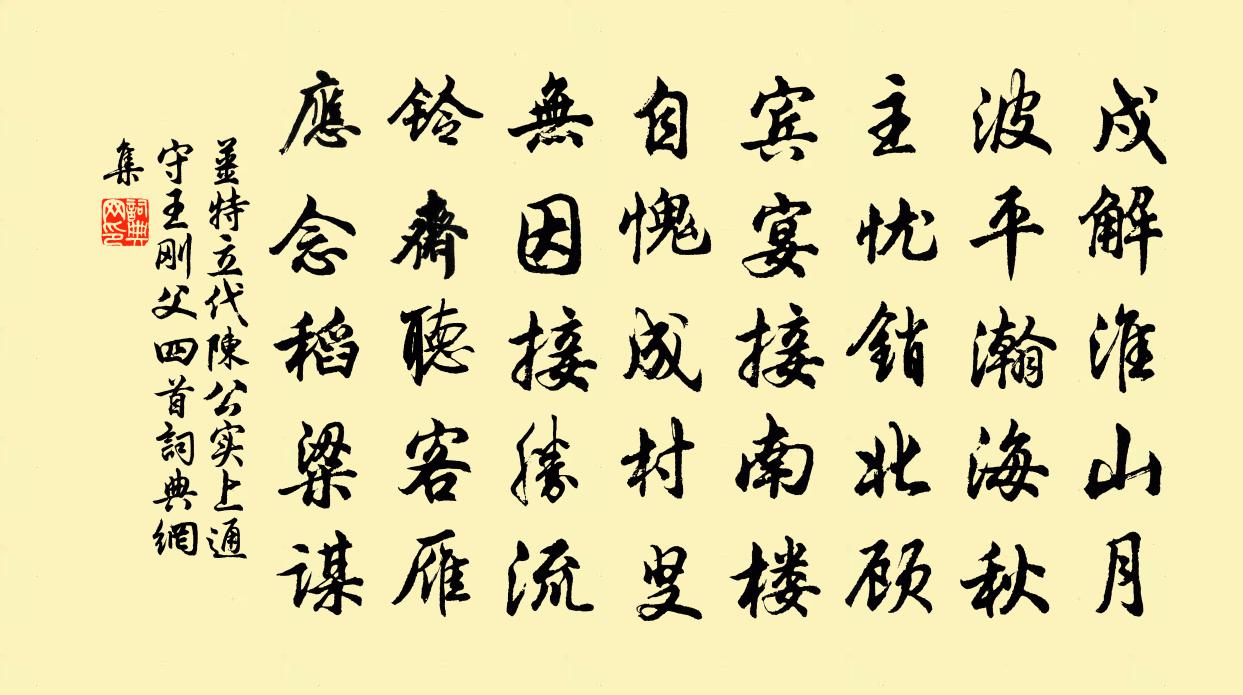 戍解淮山月
波平瀚海秋
主忧銷北顾
宾宴接南楼
自愧成村叟
無因接勝流
鈴齋聽客雁
應念稻粱謀
姜特立代陳公实上通
守王刚父四首詞典網
集
詞典
网印